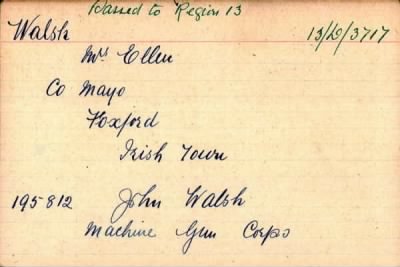 Passed to Region 13
Walsh 13/D/3717
Mrs Ellen
Co Mayo
Foxford
Irish Town
195812 John Walsh
Machine Gun Corps